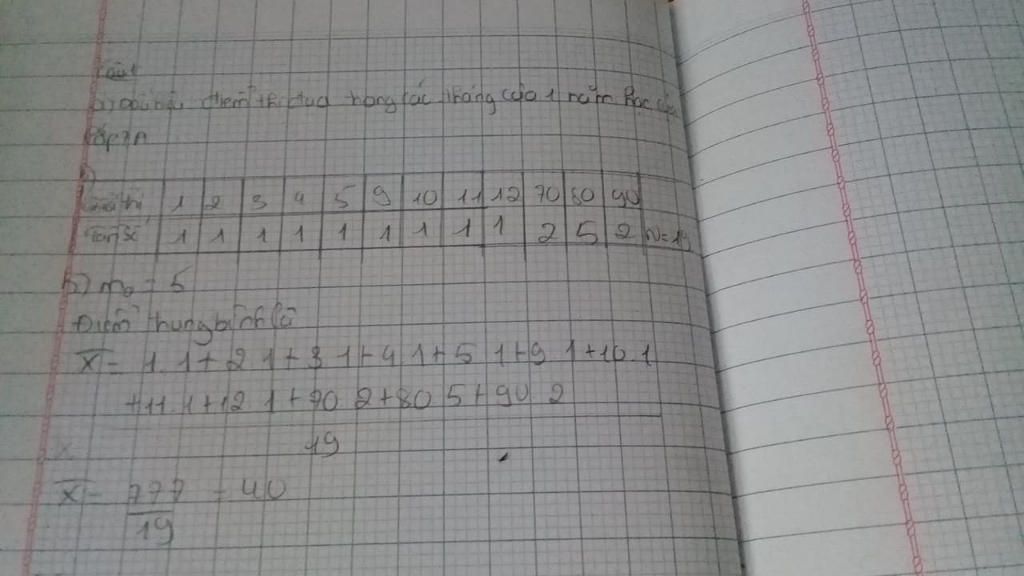 a) Dấu hiệu điểm thi đua trong các tháng của 1 năm học của
lớp 7A
b)
Giá trị 1 2 3 4 5 9 10 11 12 70 80 90
Tần số 1 1 1 1 1 1 1 1 1 2 5 2
b) m₀ = 5
Điểm trung bình là
X̅ = 1 1 + 2 1 + 3 1 + 4 1 + 5 1 + 9 1 + 10 1
+ 11 1 + 12 1 + 70 2 + 80 5 + 90 2
19
X̅ = 777/19 = 40